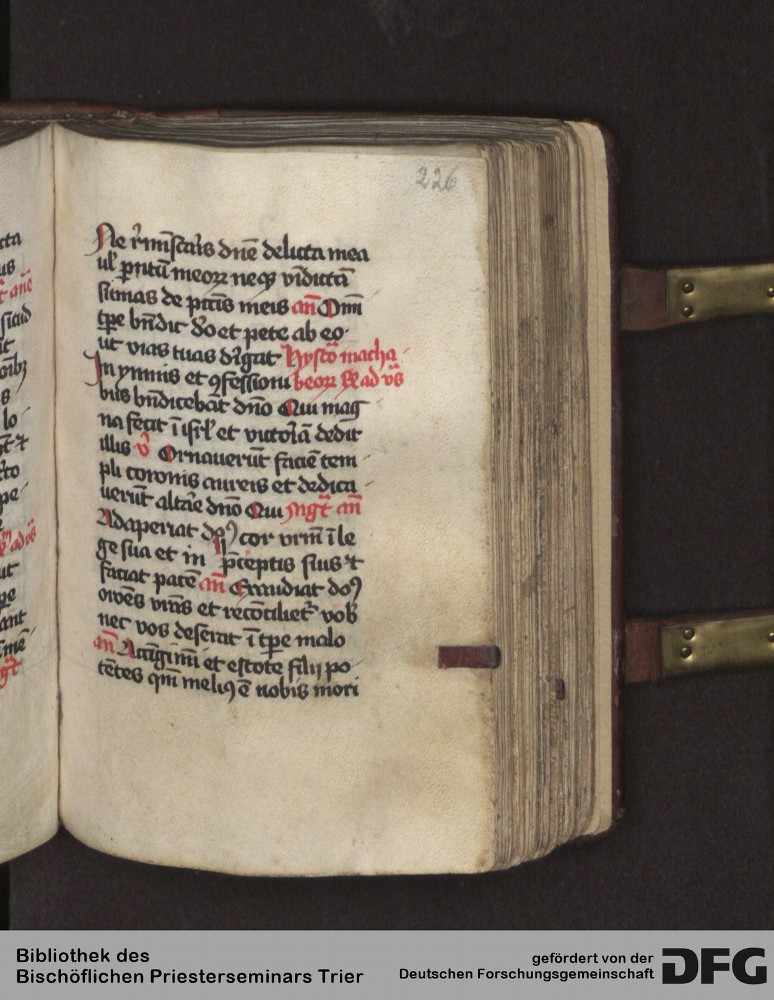 226
Ne r̄miſcaris dn̄e delicta mea
ul' pn̄tū meoꝝ neqꝫ vīdictā
ſumas de pctīs meis an̄ Omī
tpe bn̄dic do et pete ab eo
ut vias tuas dirigat Hyſto macha
In ymnis et ꝯfeſſioni beoꝝ ad vs̄
bus bn̄dicebāt dn̄o Qui mag
na fecit ī iſrl' et victoīā dedit
illis v̄ Ornauerūt faciē tem
pli coronis aureis et dedica
uerūt altāe dn̄o Qui mgt̄ an̄
Adaperiat dn̄s cor vrm̄ ī le
ge ſua et in p̄ceptis ſuis ⁊
faciat pacē an̄ Exaudiat do
oīones vrās et recōciliet vob̄
nec vos deſerat ī tpe malo
an̄ Accīgimī et eſtote filij po
tētes qm̄ meliꝰ ē nobis mori
Bibliothek des
Bischöflichen Priesterseminars Trier
gefördert von der
Deutschen Forschungsgemeinschaft
DFG